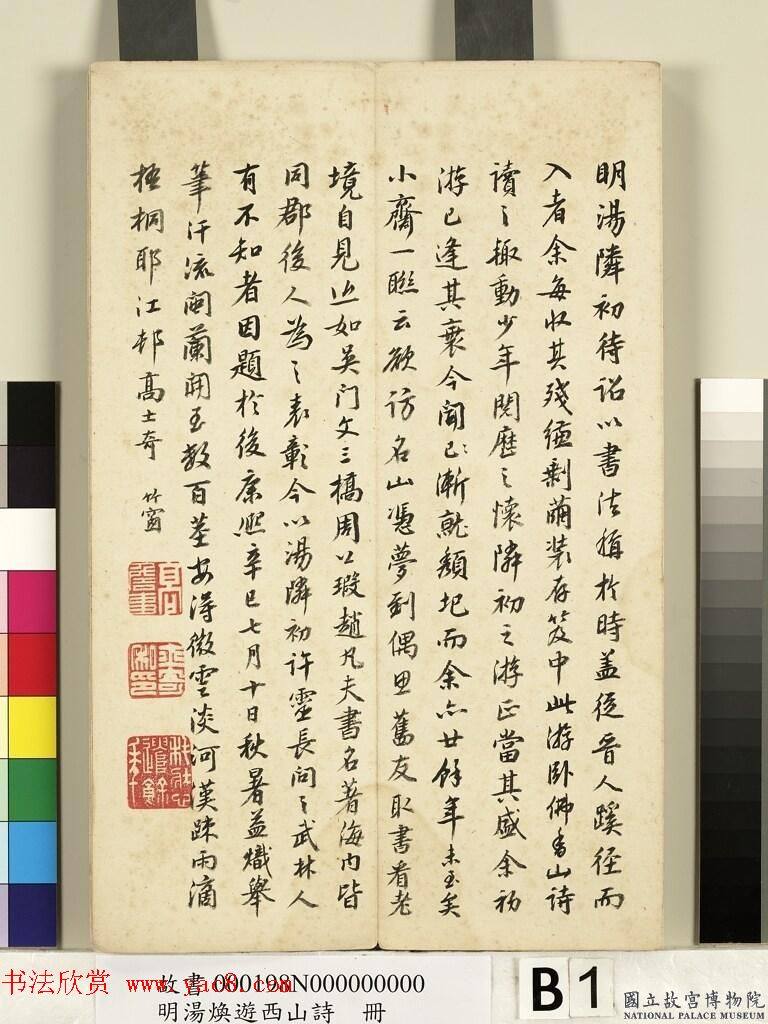 明湯隣初待詔以書法擅於時蓋從晉人蹊徑而
入者余每收其殘縑剩繭裝存笈中此游臥佛香山詩
讀之趣動少年閱歷之懷隣初之游正當其盛余初
游已逢其衰今聞已漸就頹圯而余亦廿餘年未至矣
小齋一聯云欲訪名山憑夢到偶思舊友取書看老
境自見近如吳門文三橋周公瑕趙凡夫書名著海內皆
同郡後人為之表彰今以湯隣初許靈長問之武林人
有不知者因題於後康熙辛巳七月十日秋暑益熾舉
筆汗流階蘭開至數百莖安得微雲淡河漢疎雨滴
梧桐耶江邨高士奇
竹窗
书法欣赏
www.yac8.com
故書 000198N000000000
明湯煥遊西山詩 冊
B1
國立故宮博物院
NATIONAL PALACE MUSEUM